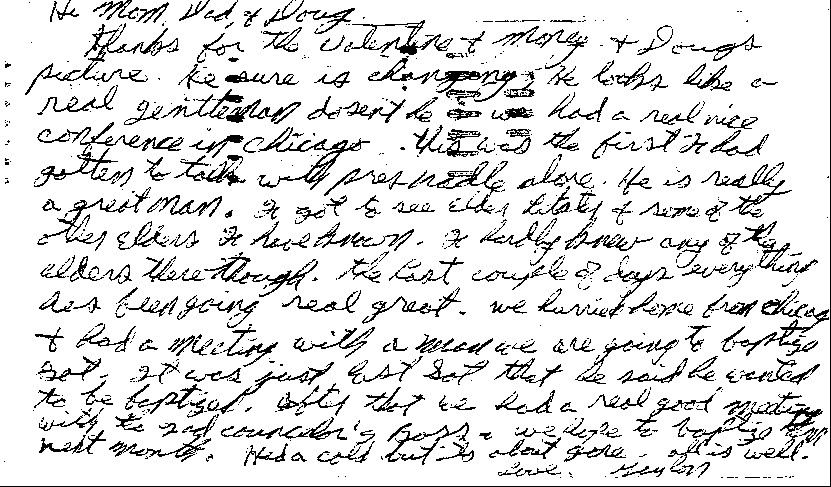 Hi Mom, Dad & Doug
Thanks for the Valentine & money & Dougs
picture. He sure is changing. He looks like a
real gentleman dosent he. We had a real nice
conference in Chicago. This was the first I had
gotten to talk with pres alone. He is really
a great man. I got to see Elder & some of the
other Elders I have known. I hardly knew any of the
elders there though. The last couple of days everything
has been going real great. We hurried home from Chicago
& had a meeting with a man we are going to baptize
Sat. It was just last Sat that he said he wanted
to be baptized. After that we had a real good meeting
with the 2nd councelor's & we hope to baptize them
next month. Had a cold but its about gone. All is well.
Love. Gaylon